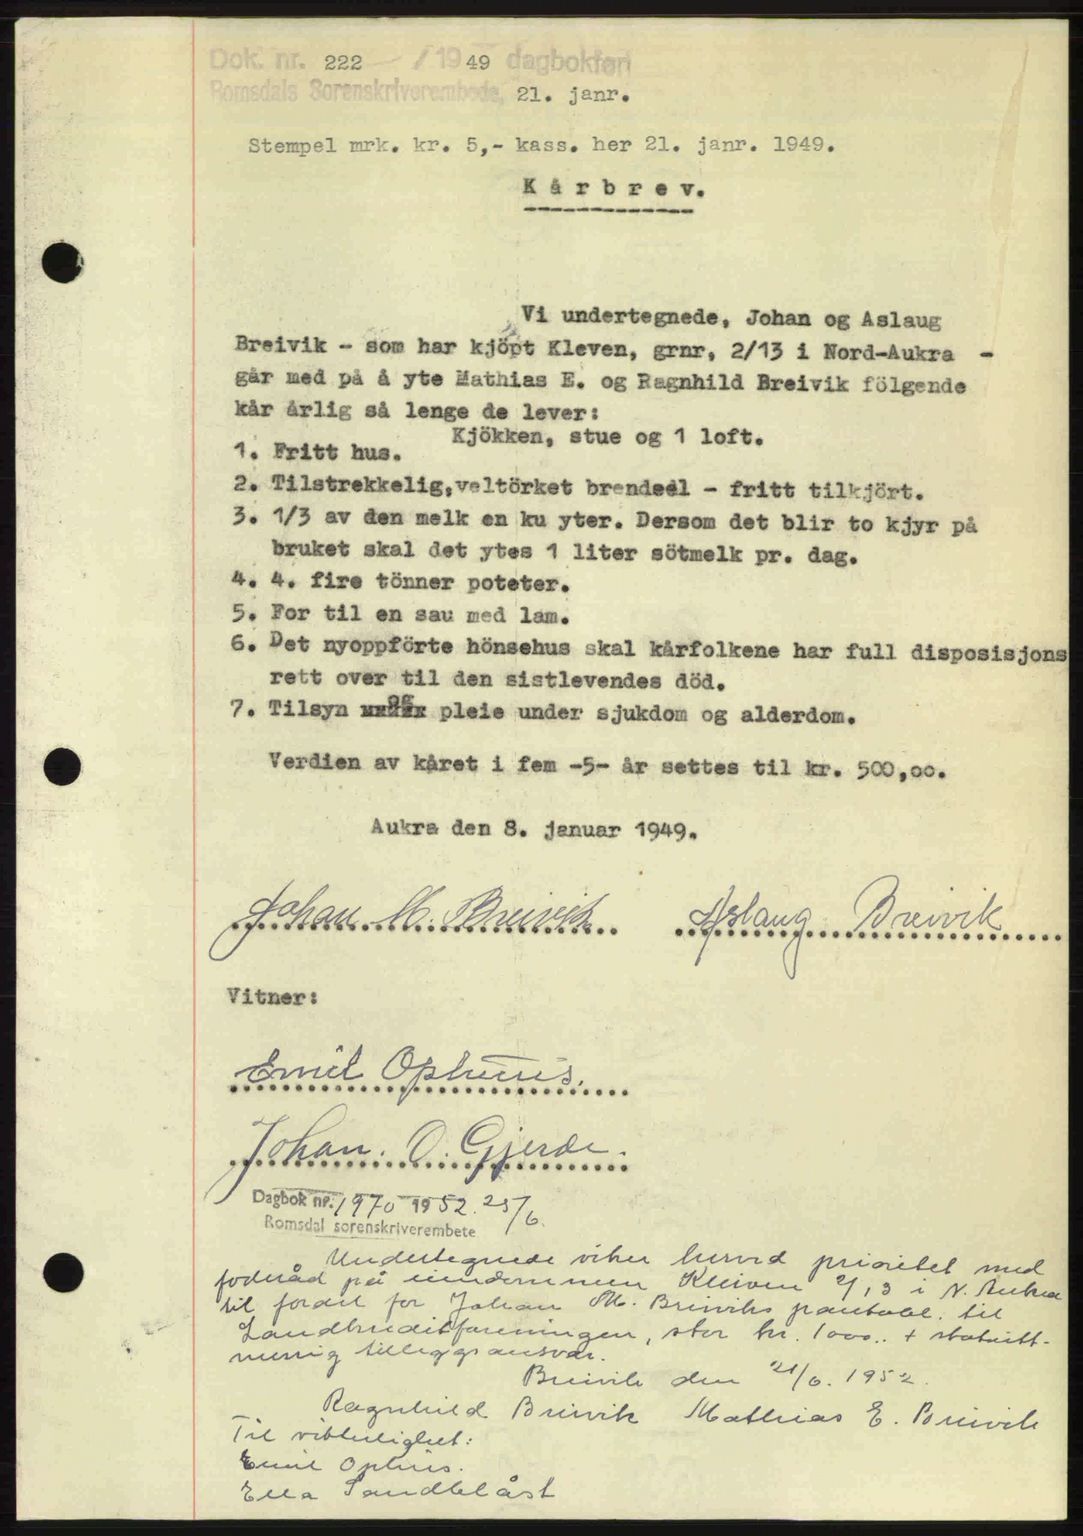 Dok. nr. 222 / 1949 dagbokført
Romsdals Sorenskriverembede, 21. janr.
Stempel mrk. kr. 5,- kass. her 21. janr. 1949.
K å r b r e v.
Vi undertegnede, Johan og Aslaug
Breivik - som har kjöpt Kleven, grnr, 2/13 i Nord-Aukra -
går med på å yte Mathias E. og Ragnhild Breivik fölgende
kår årlig så lenge de lever:
Kjökken, stue og 1 loft.
1. Fritt hus.
2. Tilstrekkelig,veltörket brendsel - fritt tilkjört.
3. 1/3 av den melk en ku yter. Dersom det blir to kjyr på
bruket skal det ytes 1 liter sötmelk pr. dag.
4. 4. fire tönner poteter.
5. For til en sau med lam.
6. Det nyoppförte hönsehus skal kårfolkene har full disposisjons
rett over til den sistlevendes död.
7. Tilsyn og pleie under sjukdom og alderdom.
Verdien av kåret i fem -5- år settes til kr. 500,oo.
Aukra den 8. januar 1949.
Johan M. Breivik Aslaug Breivik
Vitner:
Emil Ophuus.
Johan. O. Gjerde.
Dagbok nr. 1970 1952. 25/6.
Romsdal sorenskriverembete
Undertegnede viker herved prioritet med
foderåd på eiendommen Kleiven 2/13 i N. Aukra
til fordel for Johan M. Breiviks pantobl. til
Landkreditforeningen, stor kr. 1000.. + statutt-
messig tilleggsansvar.
Breivik den 21/6. 1952.
Ragnhild Breivik Mathias E. Breivik
Til vitterlighet:
Emil Ophus.
Ella Sandblåst